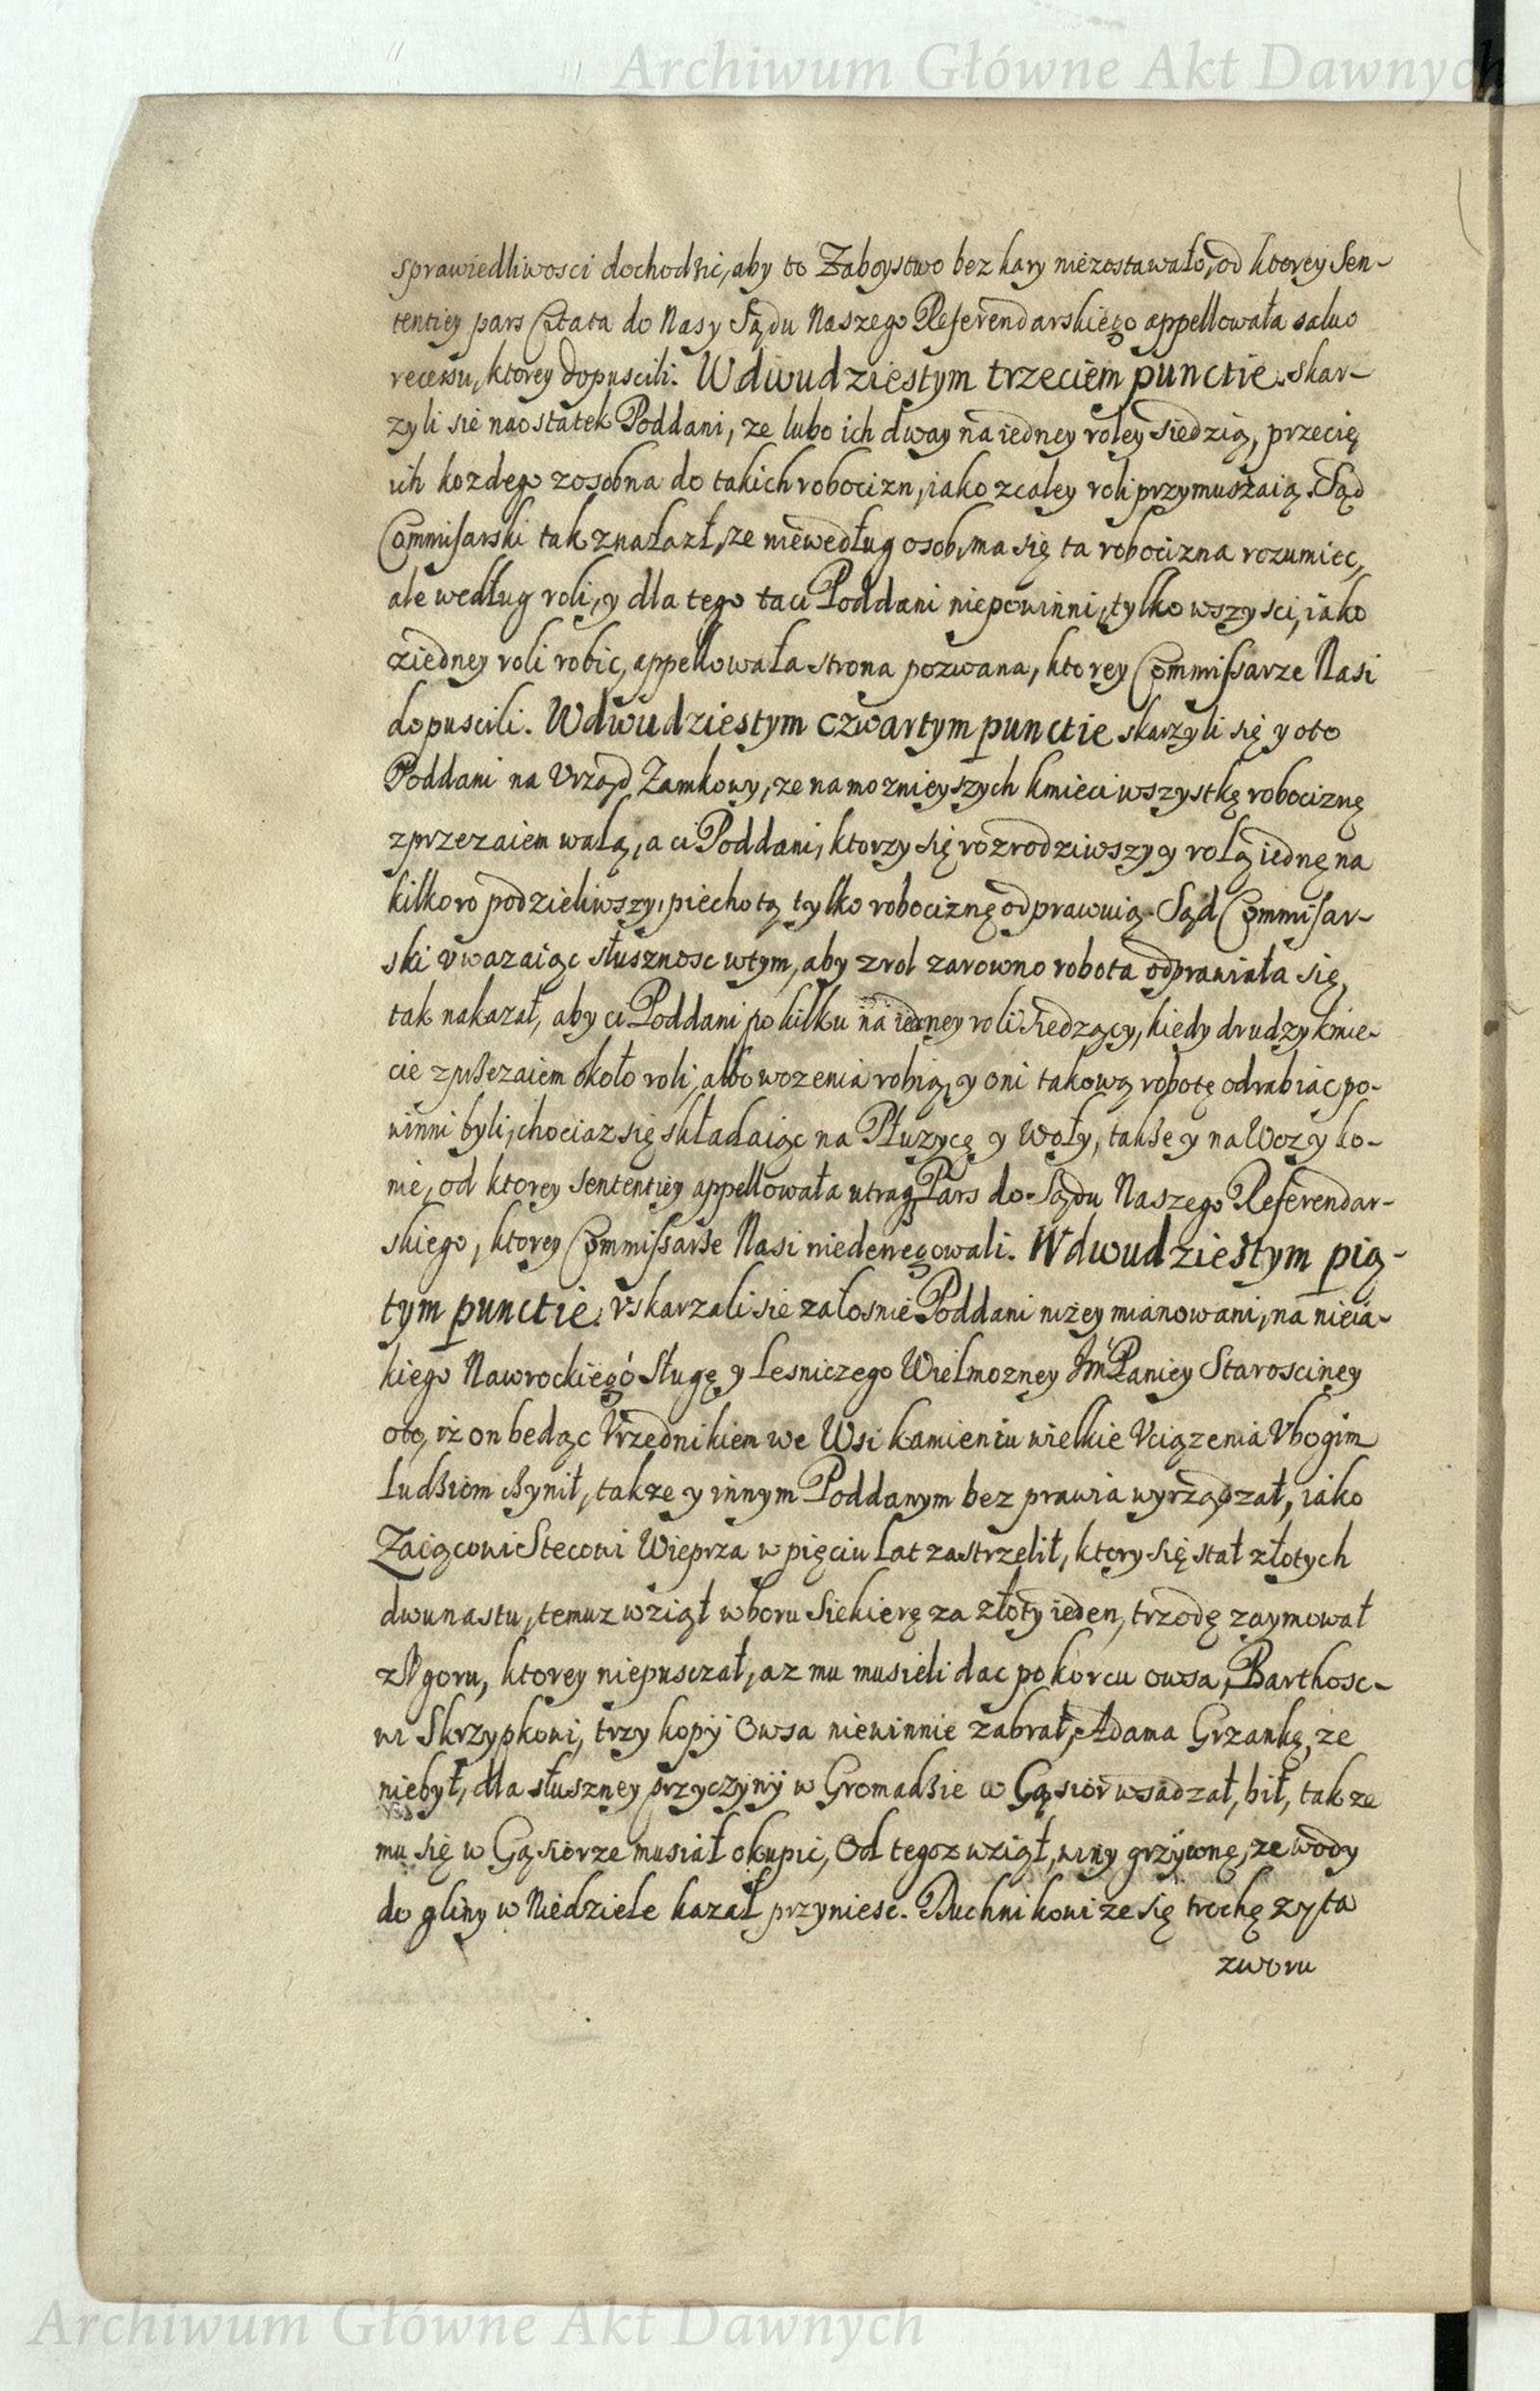 Archiwum Główne Akt Dawnych
sprawiedliwosci dochodzic, aby to Zaboystwo bez kary niezostawało, od ktorey Sen-
tentiey pars Citata do Nas y Sądu Naszego Referendarskiego appellowała saluo
recessu, ktorey dopuscili. W dwudziestym trzeciem punctie. skar-
zyli sie naostatek Poddani, ze lubo ich dway na iedney roley siedzią, przecię
ich kozdego zosobna do takich robocizn, iako zcałey roli przymuszaią. Sąd
Commissarski tak znałazł, ze niewedług osob, ma się ta robocizna rozumiec,
ale według roli, y dla tego taci Poddani niepowinni, tylko wszysci, iako
ziedney roli robic, appellowała strona pozwana, ktorey Commissarze Nasi
dopuscili. W dwudziestym czwartym punctie skarzyli się y oto
Poddani na Vrząd Zamkowy, ze na moznieyszych kmieci wszystkę robociznę
zprzezaiem walą, a ci Poddani, ktorzy się rozrodziwszy y rolą iednę na
kilkoro podzieliwszy, piechotą tylko robociznę odprawuią. Sąd Commissar-
ski vwazaiąc słusznosc wtym, aby zrol zarowno robota odprawiała się,
tak nakazał, aby ci Poddani po kilku na iedney roli siedzący, kiedy drudzy kmie-
cie zprzezaiem około roli, albo wozenia robią, y oni takową robotę odrabiac po-
winni byli, chociaz się składaiąc na Płuzycę y Woły, takze y na Wozy ko-
nie, od ktorey sententiey appellowała utraq Pars do Sądu Naszego Referendar-
skiego, ktorey Commissarze Nasi niedenegowali. W dwudziestym pią-
tym punctie. vskarzali sie załosnie Poddani niżey mianowani, na nieia-
kiego Nawrockiego Sługę y Lesniczego Wielmozney JmPaniey Starosciney
oto, iż on bedąc Vrzędnikiem we Wsi Kamieniu wielkie Vciązenia Vbogim
Ludziom czynił, takze y innym Poddanym bez prawia wyrządzał, iako
Zaiącowi Stecowi Wieprza w pięciu Lat zastrzelił, ktory się stał złotych
dwunastu, temuz wziął w boru Siekierę za złoty ieden, trzodę zaymował
z Vgoru, ktorey niepusczał, az mu musieli dac po korcu owsa, Barthosc-
wi Skrzypkowi, trzy kopy Owsa niewinnie zabrał, Adama Grzankę, że
niebył, dla słuszney przyczyny w Gromadzie w Gąsior wsadzał, bił, tak ze
mu się w Gąsiorze musiał okupic, Od tegoz wziął, winy grzywnę, ze wody
do gliny w Niedziele kazał przyniesc. Duchnikowi ze się trochę zyta
zworu
Archiwum Główne Akt Dawnych